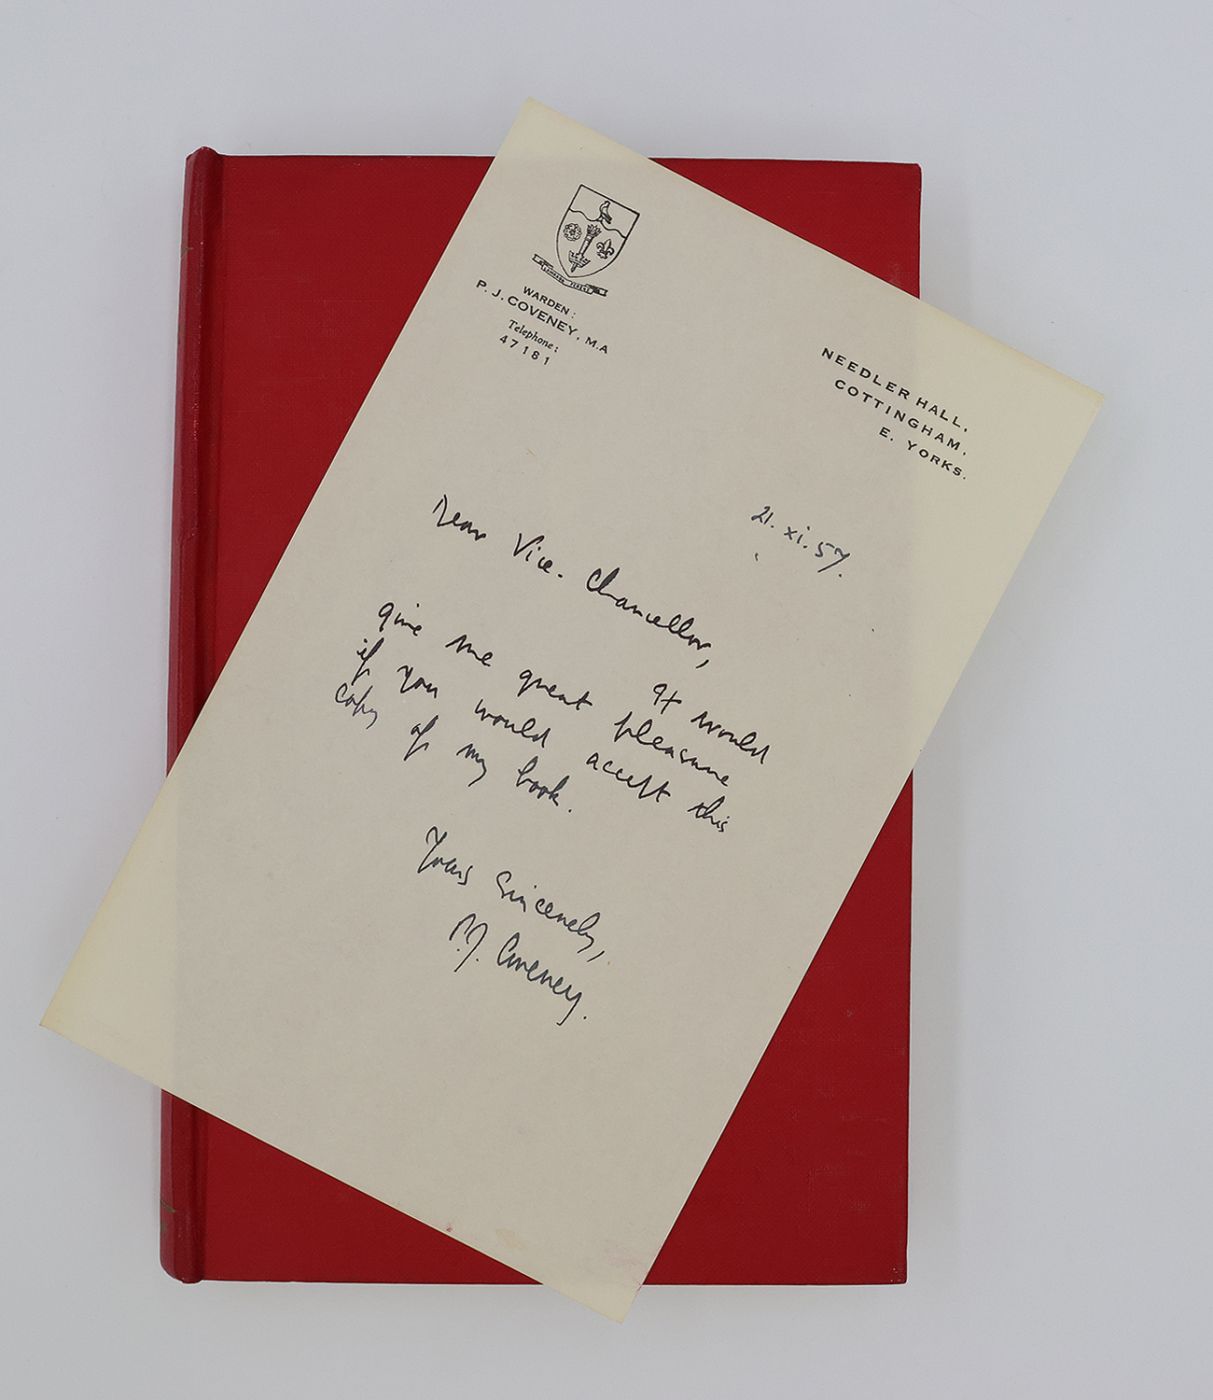 LAMPADA FERENS
WARDEN:
P. J. COVENEY, M.A
Telephone:
47181
NEEDLER HALL,
COTTINGHAM,
E. YORKS.
21. xi. 57.
Dear Vice-Chancellor,
It would
give me great pleasure
if you would accept this
copy of my book.
Yours Sincerely,
P.J. Coveney.